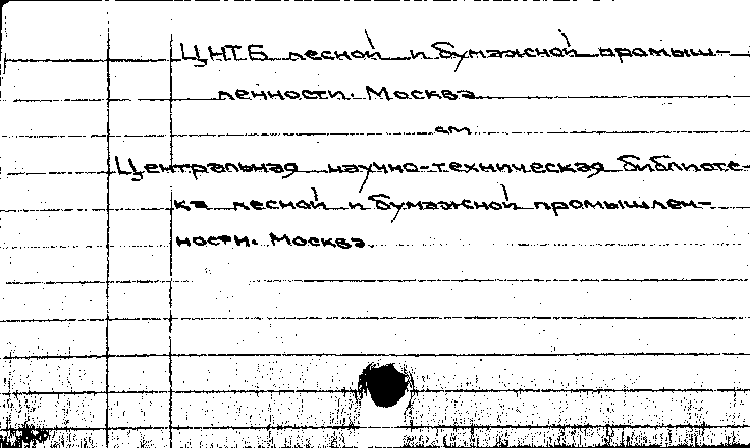 ЦНТБ лесной и бумажной промыш-
ленности. Москва
см
Центральная научно-техническая библиоте-
ка лесной и бумажной промышлен-
ности. Москва.